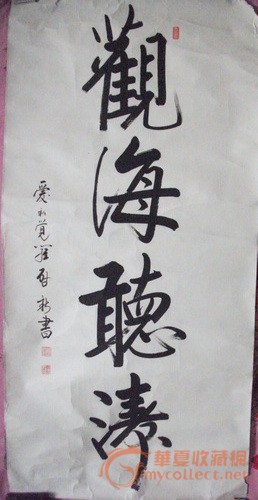 觀海聽濤
愛新覺羅啟新書
華夏收藏網
mycollect.net